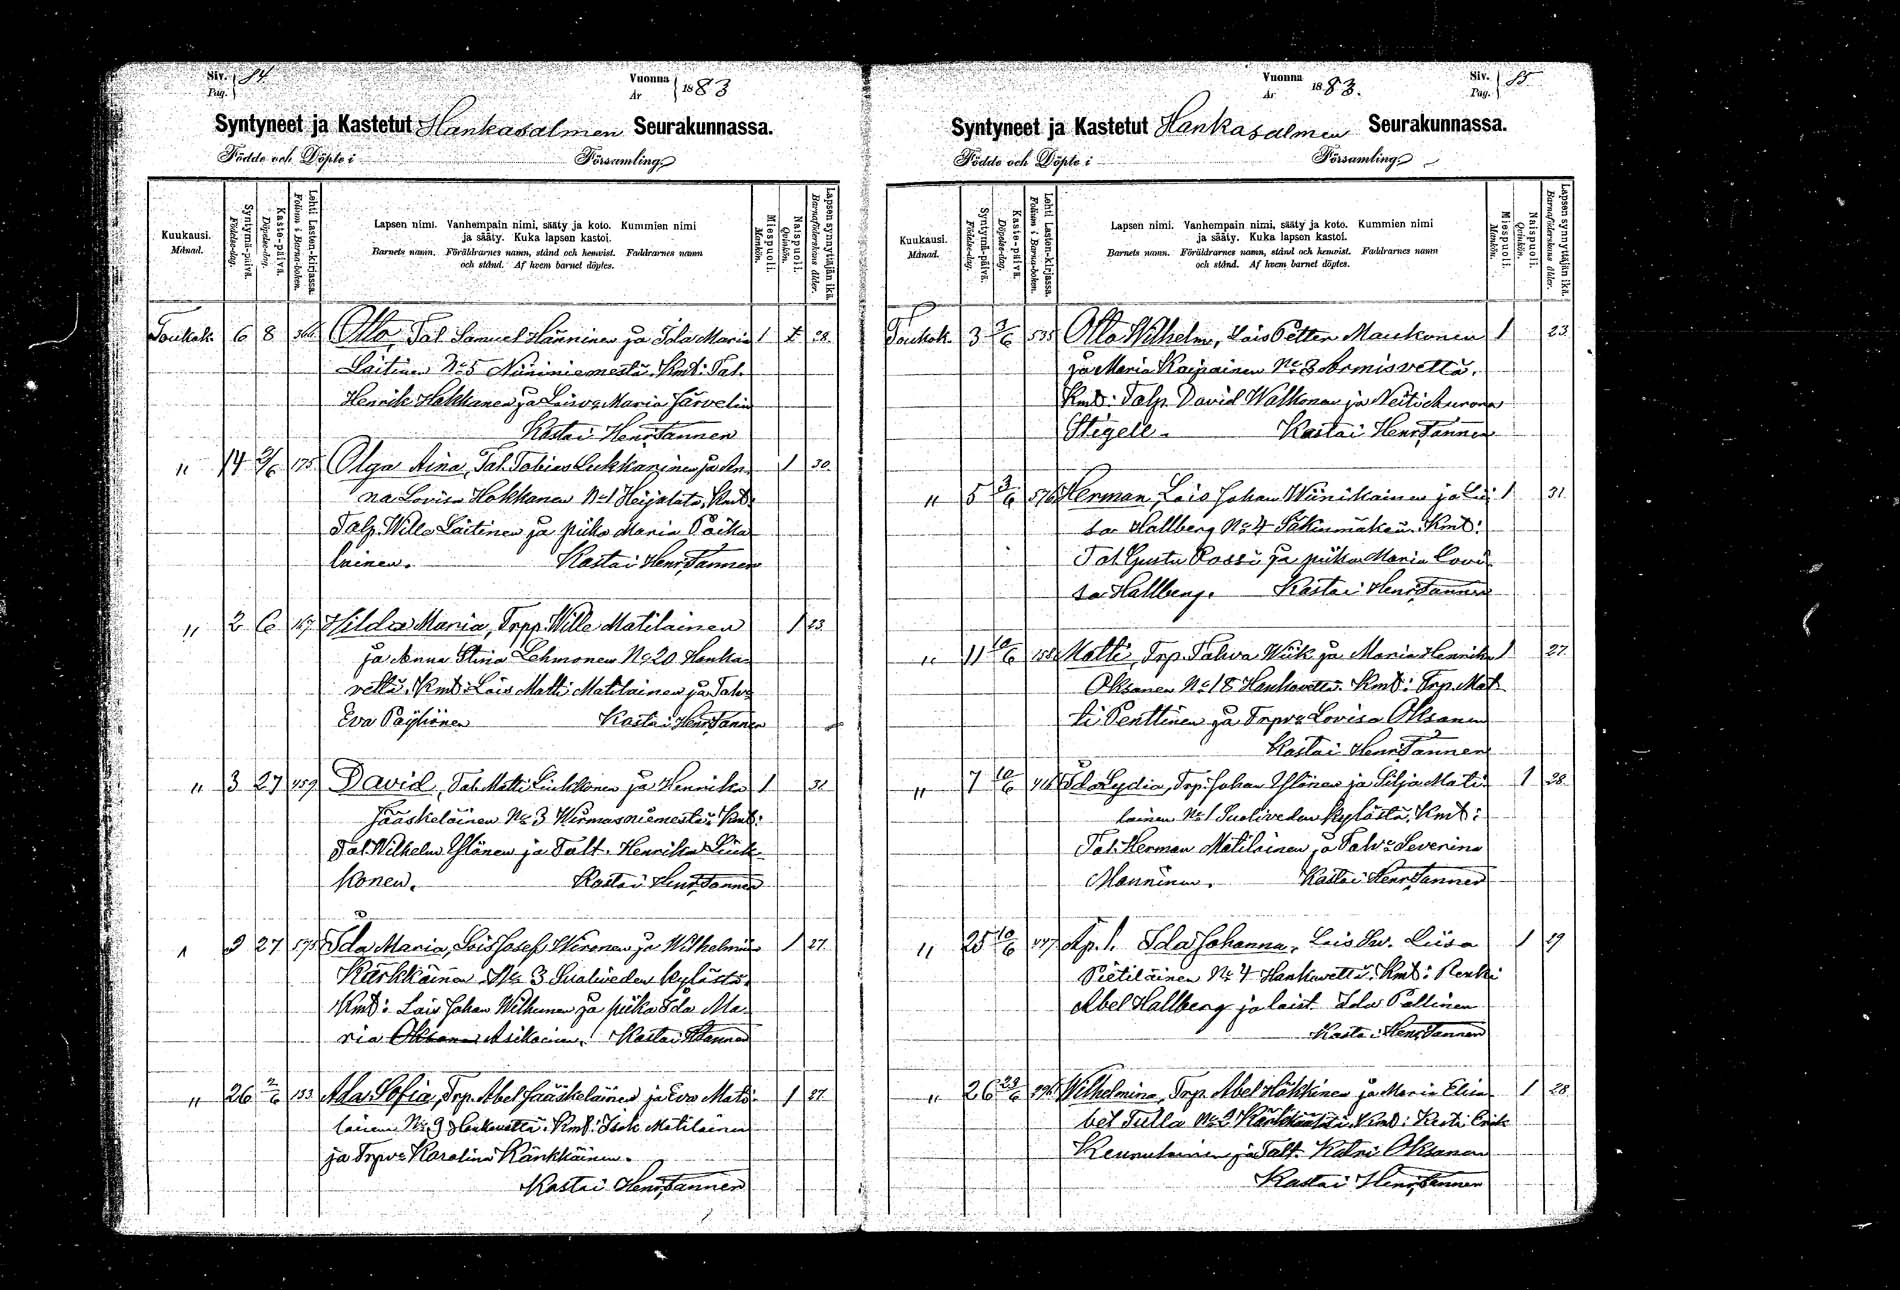 Siv. Pag. 84.
Vuonna År 1883
Syntyneet ja Kastetut Hankasalmen Seurakunnassa.
Födde och Döpte i Församling.
Kuukausi. Månad.
Syntymä-päivä. Födelse-dag.
Kaste-päivä. Döpelse-dag.
Lehti Lasten-kirjassa. Folium i Barna-boken.
Lapsen nimi. Vanhempain nimi, sääty ja koto. Kummien nimi
ja sääty. Kuka lapsen kastoi.
Barnets namn. Föräldrarnes namn, stånd och hemvist. Faddrarnes namn
och stånd. Af hvem barnet döptes.
Miespuoli. Mankön.
Naispuoli. Qvinkön.
Lapsen synnyttäjän ikä. Barnaföderskans ålder.
Toukok. 6 8 Otto, Tal. Samuel Hänninen ja Ida Maria 1 28.
Laitinen No 5 Niinimiemestä. Kmt: Tal.
Henrik Hokkanen ja Loisv: Maria Järvelin
Kastai Henr. Tannen
" 14 2/6 175 Olga Aina, Tal. Tobias Leskkaninen ja An- 1 30.
na Lovisa Hokkanen No 1 Kmt:
Talp. Wille Laitinen ja piika Maria Poika
lainen. Kastai Henr. Tannen
" 2 6 167 Hilda Maria, Trpp. Wille Matilainen 1 23.
ja Anna Stina Lehmonen No 20 Hanka-
vettä. Kmt: Lois Matti Matilainen ja Talv:
Eva Pöyhönen Kastai Henr. Tannen
" 3 27 459 David, Tal. Matti Liukkonen ja Henrika 1 31.
Jääskeläinen No 3 Wirmasniemestä. Kmt:
Tal. Wilhelm Ylönen ja Talt. Henrika Liuk-
konen. Kastai Henr. Tannen
" 9 27 595 Ida Maria, Lois Josef Wironen ja Wilhelmina 1 27.
Kärkkäinen No 3 Suoliveden kylästä.
Kmt: Lois Johan Wilhunen ja piika Ida Ma-
ria Oksanen Asikainen. Kastai HTannen
" 26 2/6 153 Ada Sofia, Trp. Abel Jääskeläinen ja Eva Mati- 1 27.
lainen No 9 Hankavettä. Kmt: Isak Matilainen
ja Trpv: Karolina Kärkkäinen.
Kastai Henr. Tannen
Vuonna År 1883.
Siv. Pag. 85.
Syntyneet ja Kastetut Hankasalmen Seurakunnassa.
Födde och Döpte i Församling.
Kuukausi. Månad.
Syntymä-päivä. Födelse-dag.
Kaste-päivä. Döpelse-dag.
Lehti Lasten-kirjassa. Folium i Barna-boken.
Lapsen nimi. Vanhempain nimi, sääty ja koto. Kummien nimi
ja sääty. Kuka lapsen kastoi.
Barnets namn. Föräldrarnes namn, stånd och hemvist. Faddrarnes namn
och stånd. Af hvem barnet döptes.
Miespuoli. Mankön.
Naispuoli. Qvinkön.
Lapsen synnyttäjän ikä. Barnaföderskans ålder.
Toukok. 3 3/6 535 Otto Wilhelm, Lois Petter Maukonen 1 23.
ja Maria Kaipainen No 3 Armisvettä.
Kmt: Talp. David Walkonen ja Neiti Aurora
Stigell. Kastai Henr. Tannen
" 5 3/6 576 Herman, Lois Johan Wiinikainen ja Lii- 1 31.
sa Hallberg No 4 Säkinmäken. Kmt:
Tal. Gusta Possi ja piika Maria Lovi-
sa Hallberg. Kastai Henr. Tannen
" 11 10/6 158 Matti, Trp. Tahva Wiik ja Maria Henrika 1 27.
Oksanen No 18 Hankavettä. Kmt: Trp. Mat-
ti Penttinen ja Trpv: Lovisa Oksanen
Kastai Henr. Tannen
" 7 10/6 416 Ida Lydia, Trp. Johan Ylönen ja Silja Mati- 1 28.
lainen No 1 Suoliveden kylästä. Kmt:
Tal. Herman Matilainen ja Talv: Severina
Manninen. Kastai Henr. Tannen
" 25 10/6 447 Äp. l. Ida Johanna, Lois Liisa 1 29
Pietiläinen No 4 Hankavettä. Kmt: Renki
Abel Hallberg ja loist. Ida Pallinen
Kastai Henr. Tannen
" 26 23/6 Wilhelmina, Trp. Abel Häkkinen ja Maria Elisa- 1 28.
bet Tulla No 2 Kmt: Erik
ja Talt. Katri Oksanen
Kastai Henr. Tannen